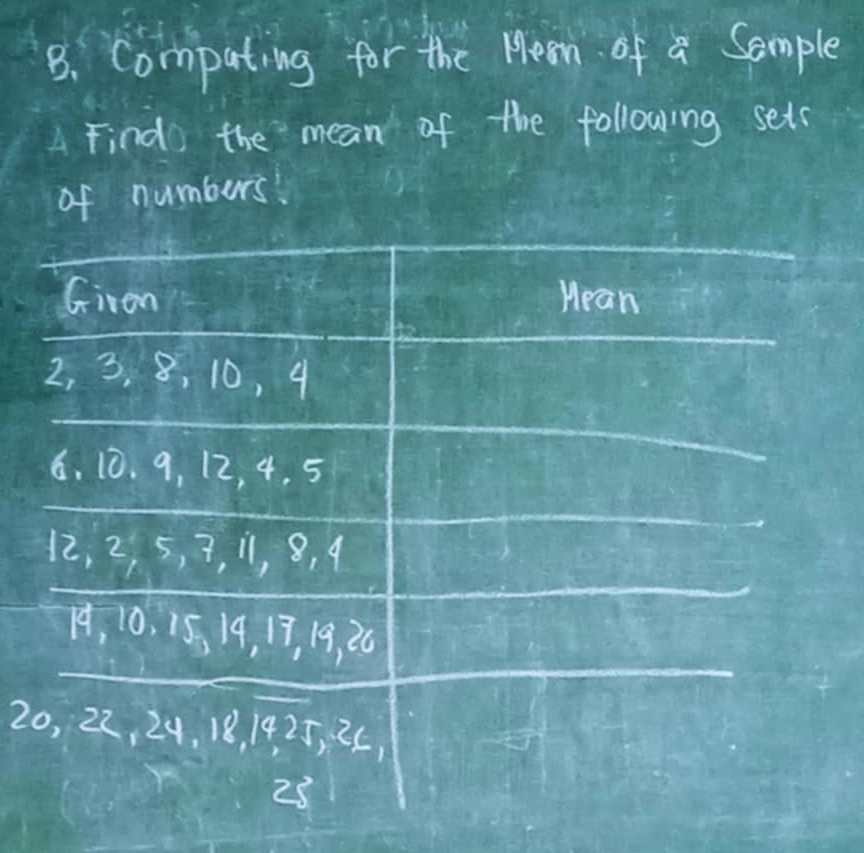 B. Computing for the Mean of a Sample
Find the mean of the following sets
of numbers:
Given Mean
2, 3, 8, 10, 4
6. 10. 9, 12, 4. 5
12, 2, 5, 7, 11, 8, 4
10. 15, 14, 17, 19, 20
20, 22, 24, 18, 25,